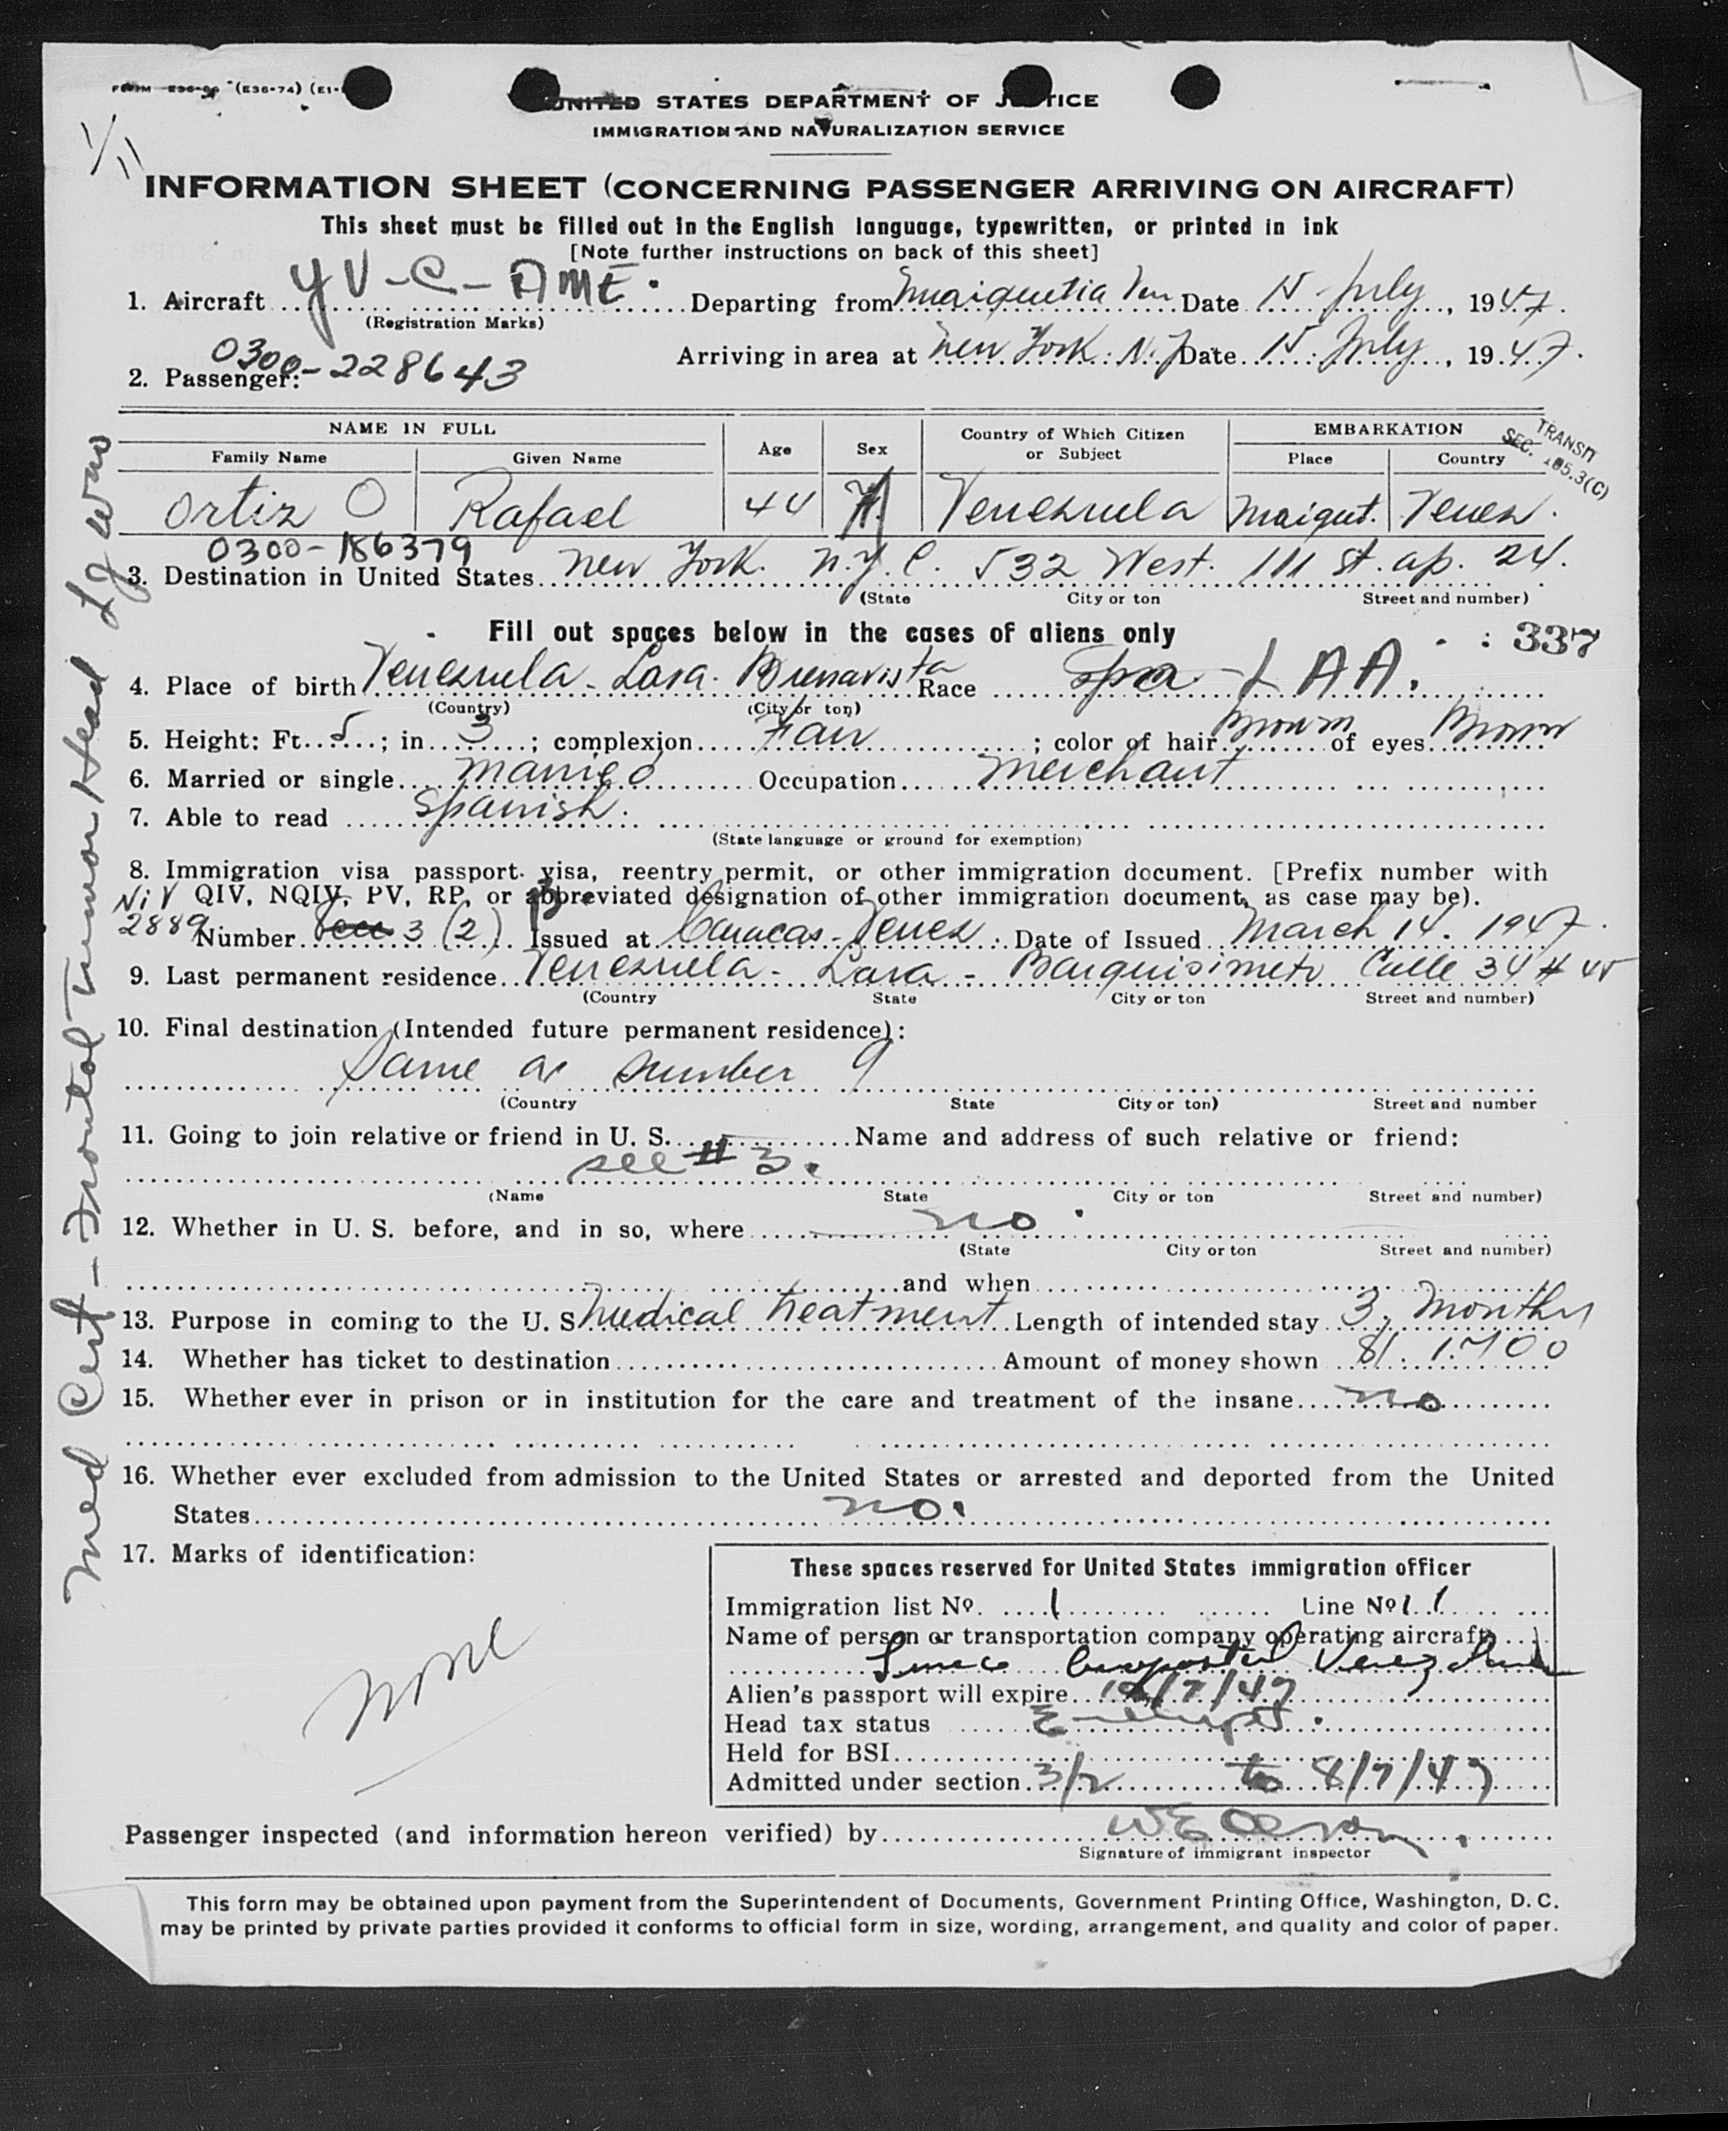 (E36-74) (E1-
UNITED STATES DEPARTMENT OF JUSTICE
IMMIGRATION AND NATURALIZATION SERVICE
1/11
INFORMATION SHEET (CONCERNING PASSENGER ARRIVING ON AIRCRAFT)
This sheet must be filled out in the English language, typewritten, or printed in ink
[Note further instructions on back of this sheet]
1. Aircraft YV-C-AME. Departing from Maiquetia Ven Date 15 July, 1947.
(Registration Marks)
Arriving in area at New York. N.Y Date 15 July, 1947.
0300-228643
2. Passenger:
NAME IN FULL Age Sex Country of Which Citizen or Subject EMBARKATION
Family Name Given Name Place Country
TRANSIT
SEC. 105.3(C)
Ortiz O Rafael 44 M. Venezuela Maiqut. Venez.
0300-186379
3. Destination in United States New York. N.Y.C. 532 West. 111 St. ap. 24.
(State City or ton Street and number)
Fill out spaces below in the cases of aliens only
: 337
4. Place of birth Venezuela - Lara. Buenavista Race Spa - LAA.
(Country) (City or ton)
5. Height: Ft. 5; in 3; complexion Fair; color of hair Brown of eyes Brown
6. Married or single married Occupation merchant
7. Able to read Spanish.
(State language or ground for exemption)
8. Immigration visa passport visa, reentry permit, or other immigration document. [Prefix number with
NiV QIV, NQIV, PV, RP, or abbreviated designation of other immigration document, as case may be).
2889 Number 3(2) Issued at Caracas - Venez. Date of Issued March 14. 1947.
9. Last permanent residence Venezuela - Lara - Barquisimeto Calle 34 # 45
(Country State City or ton Street and number)
10. Final destination (Intended future permanent residence):
Same as number 9
(Country State City or ton) Street and number
11. Going to join relative or friend in U. S. Name and address of such relative or friend:
see # 3.
(Name State City or ton Street and number)
12. Whether in U. S. before, and in so, where no.
(State City or ton Street and number)
and when
13. Purpose in coming to the U. S Medical treatment Length of intended stay 3, Months
14. Whether has ticket to destination Amount of money shown $1.1.700
15. Whether ever in prison or in institution for the care and treatment of the insane no
16. Whether ever excluded from admission to the United States or arrested and deported from the United
States no.
17. Marks of identification:
none
These spaces reserved for United States immigration officer
Immigration list No. 1 Line No 1 1
Name of person or transportation company operating aircraft
Linea Aeropostal Venezolana
Alien's passport will expire /7/47
Head tax status Exempt.
Held for BSI
Admitted under section 3/2 to 8/7/47
Passenger inspected (and information hereon verified) by W E Olson
Signature of immigrant inspector
This form may be obtained upon payment from the Superintendent of Documents, Government Printing Office, Washington, D. C.
may be printed by private parties provided it conforms to official form in size, wording, arrangement, and quality and color of paper.
Med Cert - Frontal Tumor Head